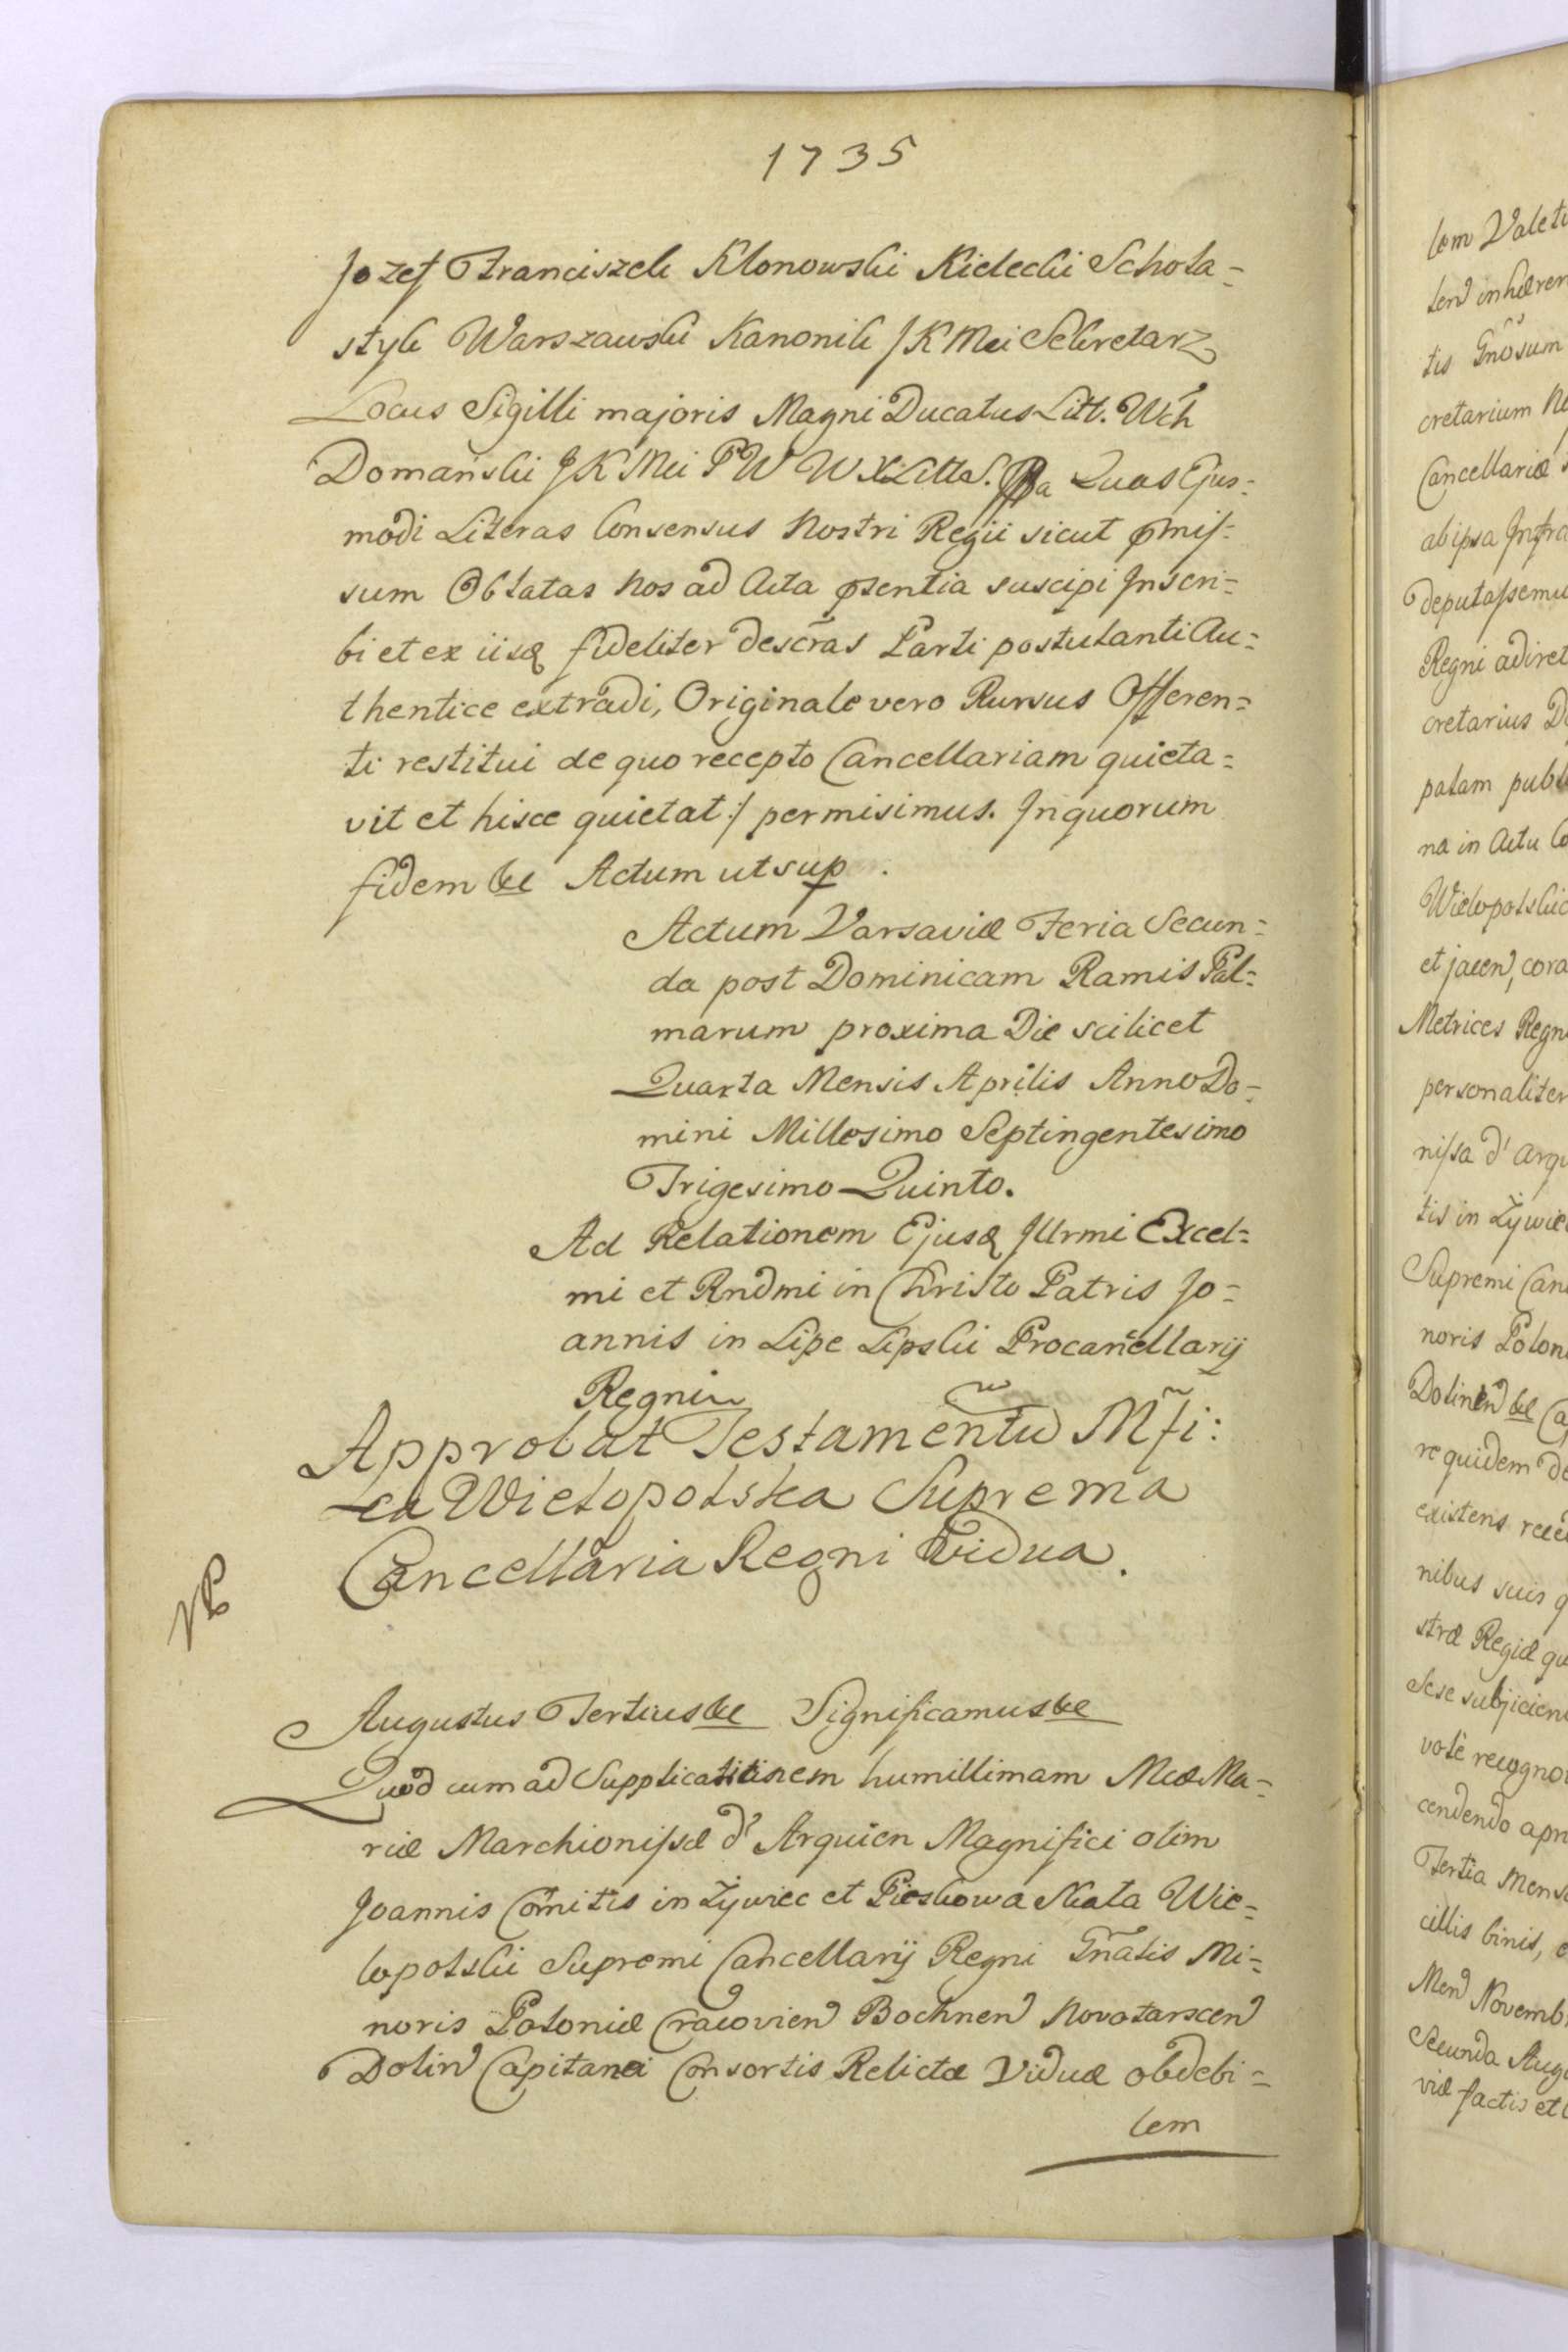 1735
Jozef Franciszek Klonowski Kielecki Schola-
styk Warszawski Kanonik JK Mci Sekretarz
Locus Sigilli majoris Magni Ducatus Litt. Wch
Domański JK Mci PW WXLittS. Quas Ejus-
modi Literas Consensus Nostri Regii sicut pmis-
sum Oblatas Nos ad Acta psentia suscipi Inscri-
bi et ex iisq fideliter descras Parti postulanti Au-
thentice extradi, Originale vero Rursus Offeren-
ti restitui de quo recepto Cancellariam quieta-
vit et hisce quietat :/ permisimus. In quorum
fidem &c Actum ut sup.
Actum Varsaviæ Feria Secun-
da post Dominicam Ramis Pal-
marum proxima Die scilicet
Quarta Mensis Aprilis Anno Do-
mini Millesimo Septingentesimo
Trigesimo Quinto.
Ad Relationem Ejusq Illrmi Excel-
mi et Rndmi in Christo Patris Jo-
annis in Lipe Lipski Procancellarij
Regni
Approbat Testamentū Mfi:
ca Wielopolska Suprema
Cancellaria Regni Vidua.
Augustus Tertius &c Significamus &c
Quod cum ad Supplicationem humillimam Mcæ Ma-
riæ Marchionissæ d'Arquien Magnifici olim
Joannis Comitis in Żywiec et Pieskowa Skała Wie-
lopolski Supremi Cancellarij Regni Gnalis Mi-
noris Poloniæ Cracovien Bochnen Novotarscen
Dolin Capitanei Consortis Relictæ Viduæ ob debi-
lem
lem
cretarium
Cancellariæ
ab ipsa
Regni adiret
cretarius
palam
na in Actu
et
Metrices
personaliter
nissa d'
tis in
Supremi
noris
re quidem
existens
nibus suis
stræ Regiæ
Sese
cendendo
Tertia
cillis binis,
Secunda
viæ factis et